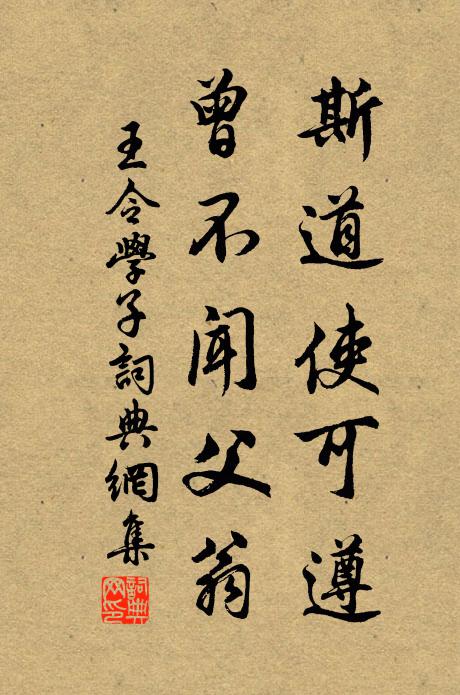 斯道使可遵
曾不闻父翁
王令學子詞典網集
詞典網印